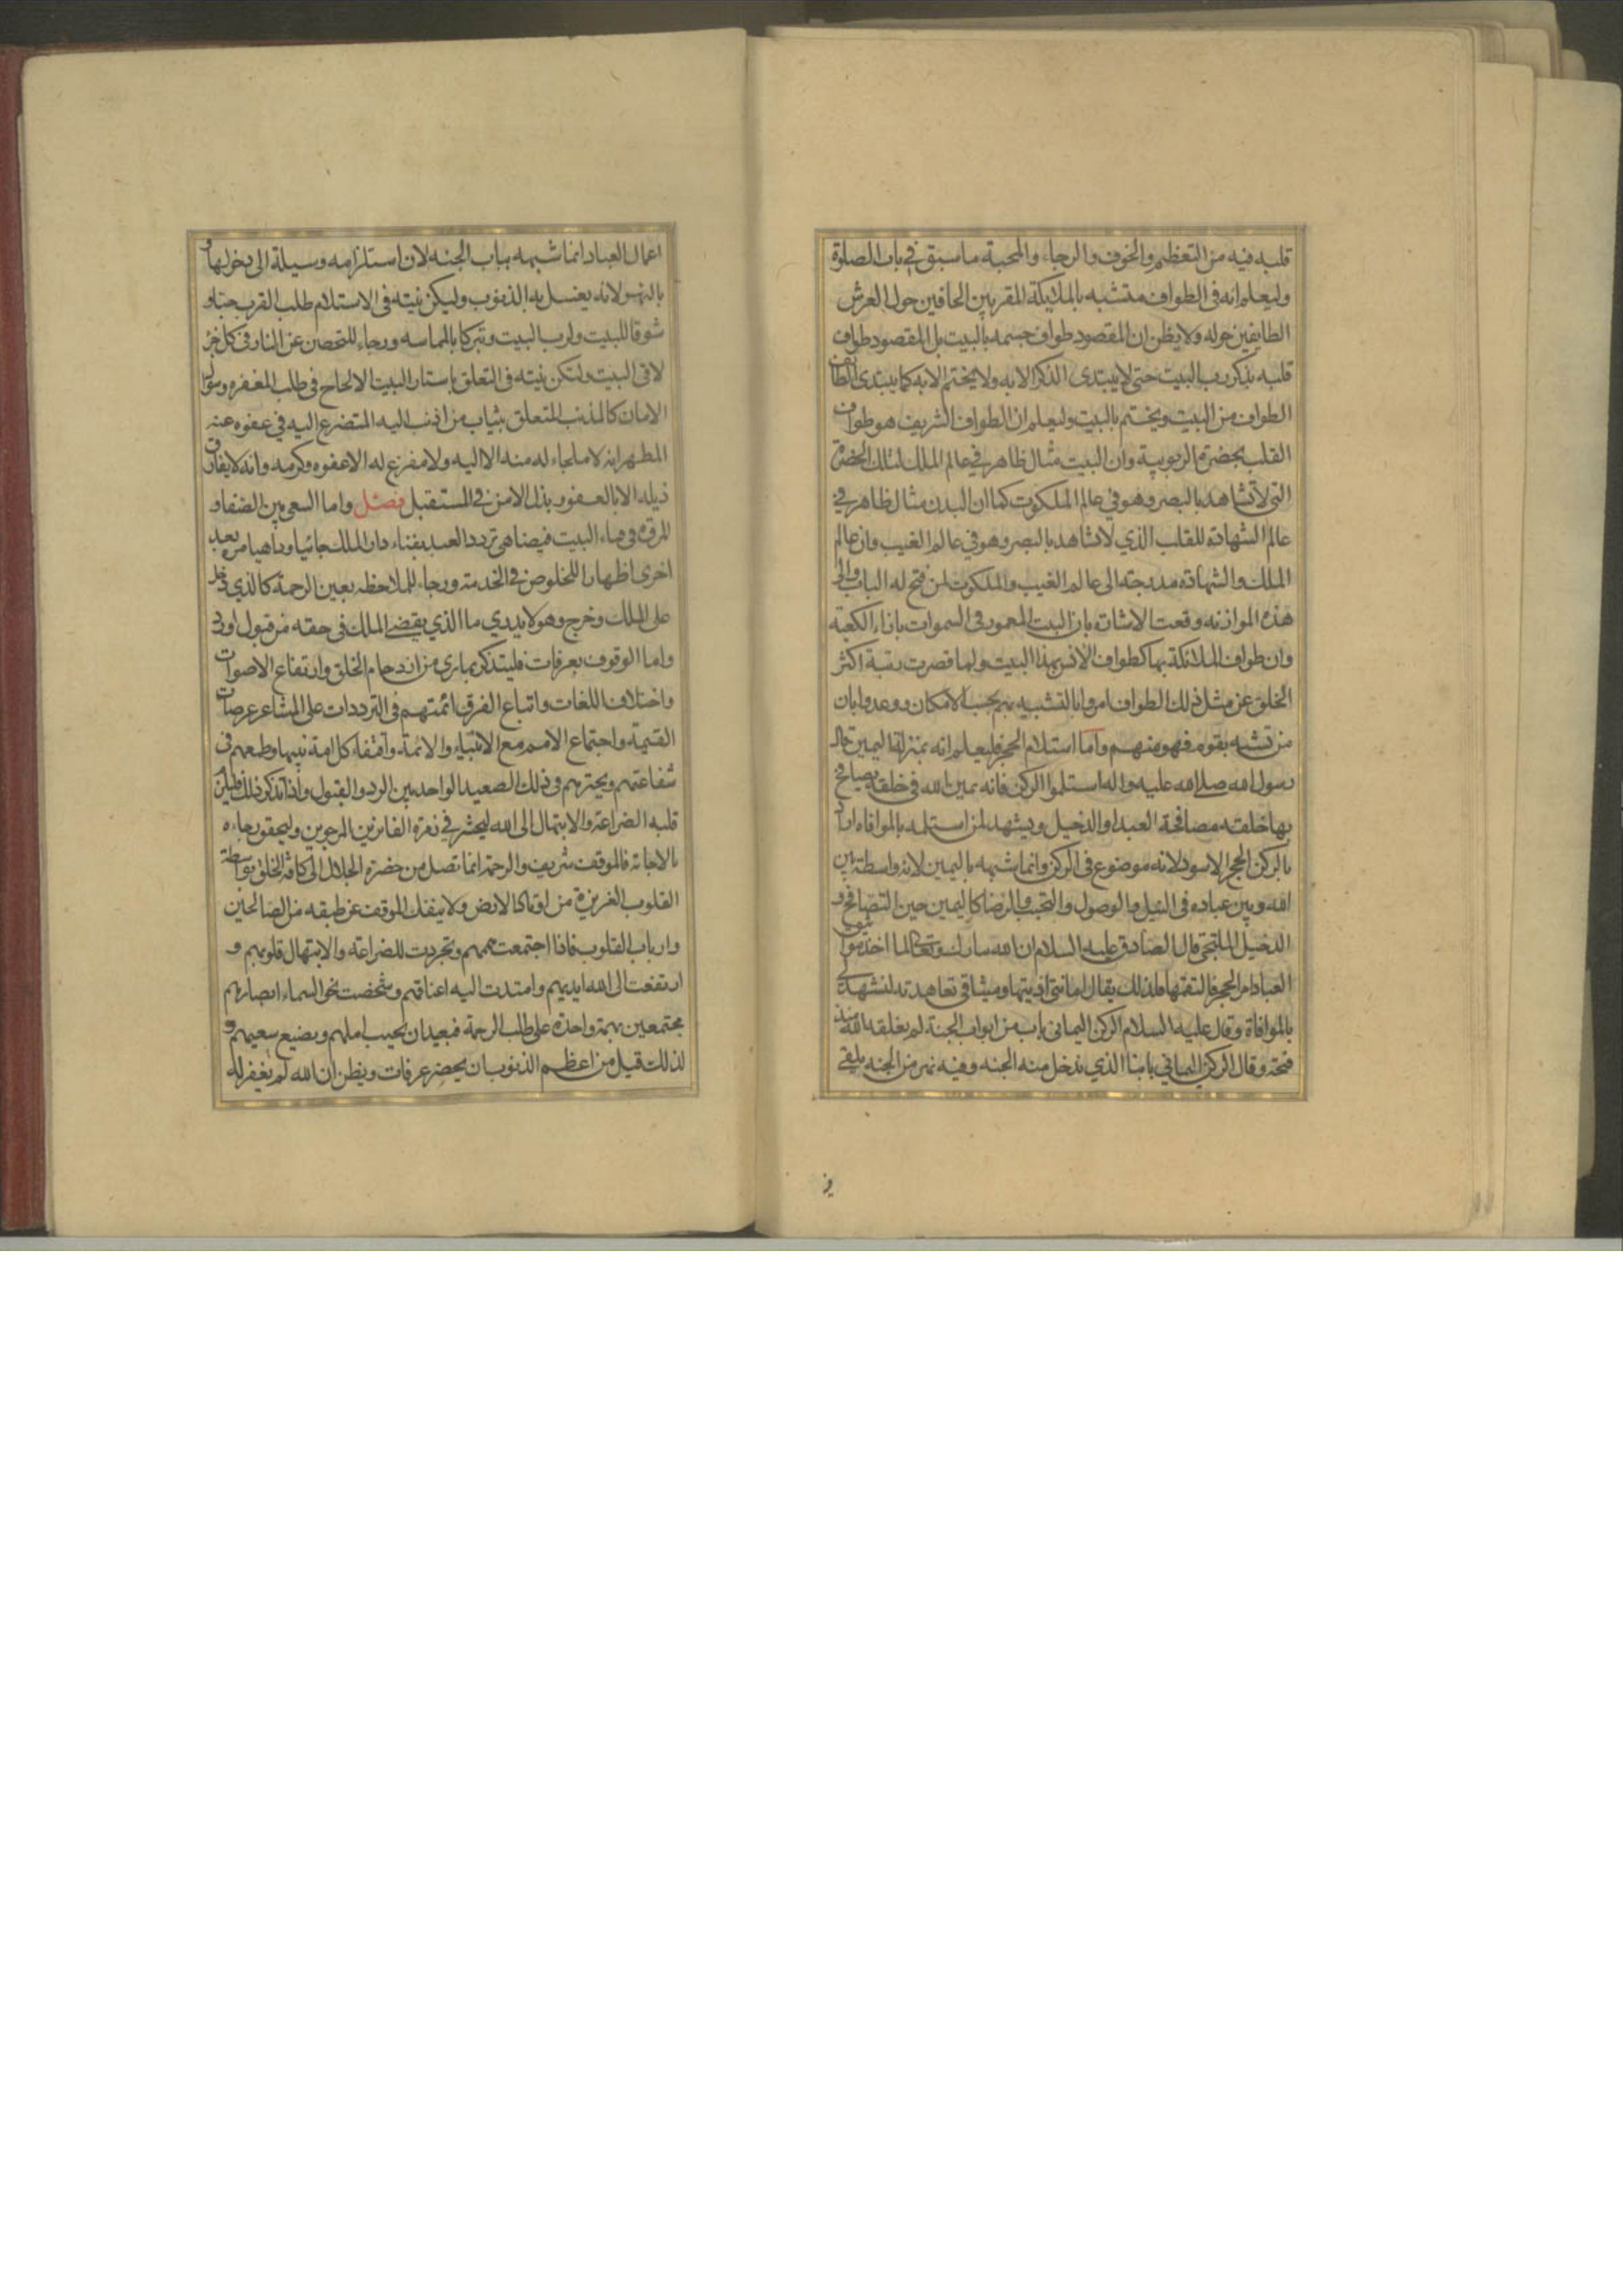 قلبه فيه من التعظيم والخوف والرجاء والمحبة ما سبق في باب الصلوة
وليعلم انه في الطواف متشبه بالملئكة المقربين الحافين حول العرش
الطايفين حوله ولا يظن ان المقصود طواف جسمه بالبيت بل المقصود طواف
قلبه بذكر رب البيت حتى لا يبتدى الذكر الا به ولا يختم الا به كما يبتدى الطائف
الطواف من البيت ويختم بالبيت وليعلم ان الطواف الشريف هو طواف
القلب بحضرة الربوبية وان البيت مثال ظاهر في عالم الملك لتلك الحضرة
التي لا تشاهد بالبصر وهو في عالم الملكوت كما ان البدن مثال ظاهر في
عالم الشهادة للقلب الذي لا تشاهد بالبصر وهو في عالم الغيب وان عالم
الملك والشهادة مدرجة الى عالم الغيب والملكوت لمن فتح له الباب والى
هذه الموازنه وقعت الاشارة بان البيت المعمور في السموات بازاء الكعبة
وان طواف الملائكة بها كطواف الانس بهذا البيت ولما قصرت رتبة اكثر
الخلق عن مثل ذلك الطواف امروا بالتشبيه بهم بحسب الامكان ووعدوا بان
من تشبه بقوم فهو منهم واما استلام الحجر فليعلم انه بمنزلة اليمين قال
رسول الله صلى الله عليه واله استلموا الركن فانه يمين الله في خلقه يصافح
بها خلقه مصافحة العبد او الدخيل ويشهد لمن استلمه بالموافاه اراد
بالركن الحجر الاسود لانه موضوع في الركن وانما شبهه باليمين لانه واسطة بين
الله وبين عباده في النيل والوصول والتحبب والرضا كاليمين حين التصافح و
الدخيل الملتجي قال الصادق عليه السلام ان الله تبارك وتعالى لما اخذ مواثيق
العباد امر الحجر فالتقمها فلذلك يقال امانتي اديتها وميثاقي تعاهدته لتشهد لى
بالموافاة وقال عليه السلام الركن اليماني باب من ابواب الجنة لم يغلقه الله منذ
فتحه وقال الركن اليماني بابنا الذي ندخل منه الجنه وفيه نهر من الجنه يلقى
في
اعمال العباد انما شبهه بباب الجنه لان استلزامه وسيلة الى دخولها و
بالنهر لانه يغسل به الذنوب وليكن نيته في الاستلام طلب القرب حبا و
شوقا للبيت ولرب البيت وتبركا بالمماسه ورجاء للتحصن عن النار في كل جزء
لاقى البيت ولتكن نيته في التعلق باستار البيت الالحاح في طلب المغفره وسؤال
الامان كالمذنب المتعلق بثياب من اذنب اليه المتضرع اليه في عفوه عنه
المظهر انه لا ملجاء له منه الا اليه ولا مفزع له الا عفوه وكرمه وانه لا يفارق
ذيله الا بالعفو وبذل الامن في المستقبل فصل واما السعى بين الصفا و
المروة في فناء البيت فيضاهي تردد العبد بفناء دار الملك جائيا وذاهبا مرة بعد
اخرى اظهارا للخلوص في الخدمة ورجاء للملاحظه بعين الرحمة كالذي دخل
على الملك وخرج وهو لا يدري ما الذي يقضي الملك في حقه من قبول او رد
واما الوقوف بعرفات فليتذكر بما يرى من ازدحام الخلق وارتفاع الاصوات
واختلاف اللغات واتباع الفرق ائمتهم في الترددات على المشاعر عرصات
القيمة واجتماع الامم مع الانبياء والائمة واقتفاء كل امة نبيها وطمعهم في
شفاعتهم وتحيرهم في ذلك الصعيد الواحد بين الرد والقبول واذا تذكر ذلك فليلزم
قلبه الضراعة والابتهال الى الله ليحشر في زمرة الفائزين المرحومين وليحقق رجاءه
بالاجابة فالموقف شريف والرحمة انما تصل من حضرة الجلال الى كافة الخلق بواسطة
القلوب العزيزة من اوتاد الارض ولا ينفك الموقف عن طبقه من الصالحين
وارباب القلوب فاذا اجتمعت هممهم وتجردت للضراعة والابتهال قلوبهم و
ارتفعت الى الله ايديهم وامتدت اليه اعناقهم وشخصت نحو السماء ابصارهم
مجتمعين بهمة واحدة على طلب الرحمة فبعيد ان يخيب املهم ويضيع سعيهم و
لذلك قيل من اعظم الذنوب ان يحضر عرفات ويظن ان الله لم يغفر له